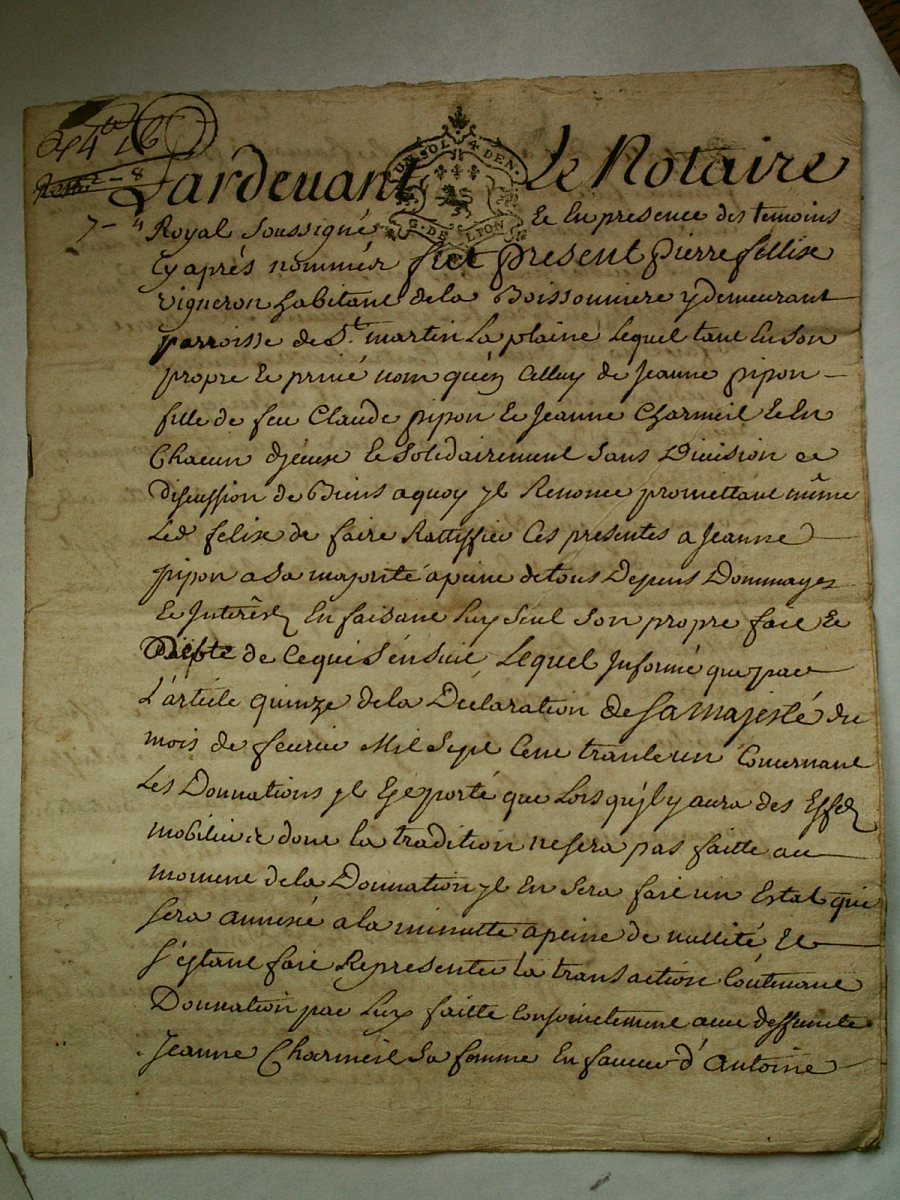 44 16
2 - 8
7 - 4
UN SOL 4 DEN.
G. DE LYON
Pardeuant Le Notaire
Royal Soussigné Et En presence des temoins
Cy aprés nommér fut present pierre fellix
vigneron habitant dela Boissonniere y demeurant
parroisse de St. martin La plaine Lequel tant En son
propre Et privé nom qu'én Celluy de Jeanne pipon
fille de feu Claude pipon Et Jeanne Charmeil Et En
Chacun d'jceux Et Solidairement Sans Diuision ee
discussion de Biens aquoy yl Renonce promettant même
Led. felix de faire Rattiffier Ces presentes a Jeanne
pipon a Sa majorité apeine detous Depens Dommages
Et Interêts En faisant Luy Seul Son propre fait Et
de Cequi S'énSuit Lequel Jnformé que par
L'article quinze dela Déclaration de Sa majesté du
mois de feurier Mil Sept Cent trante un Concernant
Les Donnations yl Est porté que Lorsqu'yl y aura des Effets
mobiliair dont la tradition nesera pas faitte au
moment dela Donnation yl En Sera fait un Estat qui
Sera annexé a la minutte apeine de nullité Et
S'éstant fait Representer la transaction Contenant
Donnation par Luy faitte Conjointement auec deffuncte
Jeanne Charmeil Sa femme En faueur d'Antoine